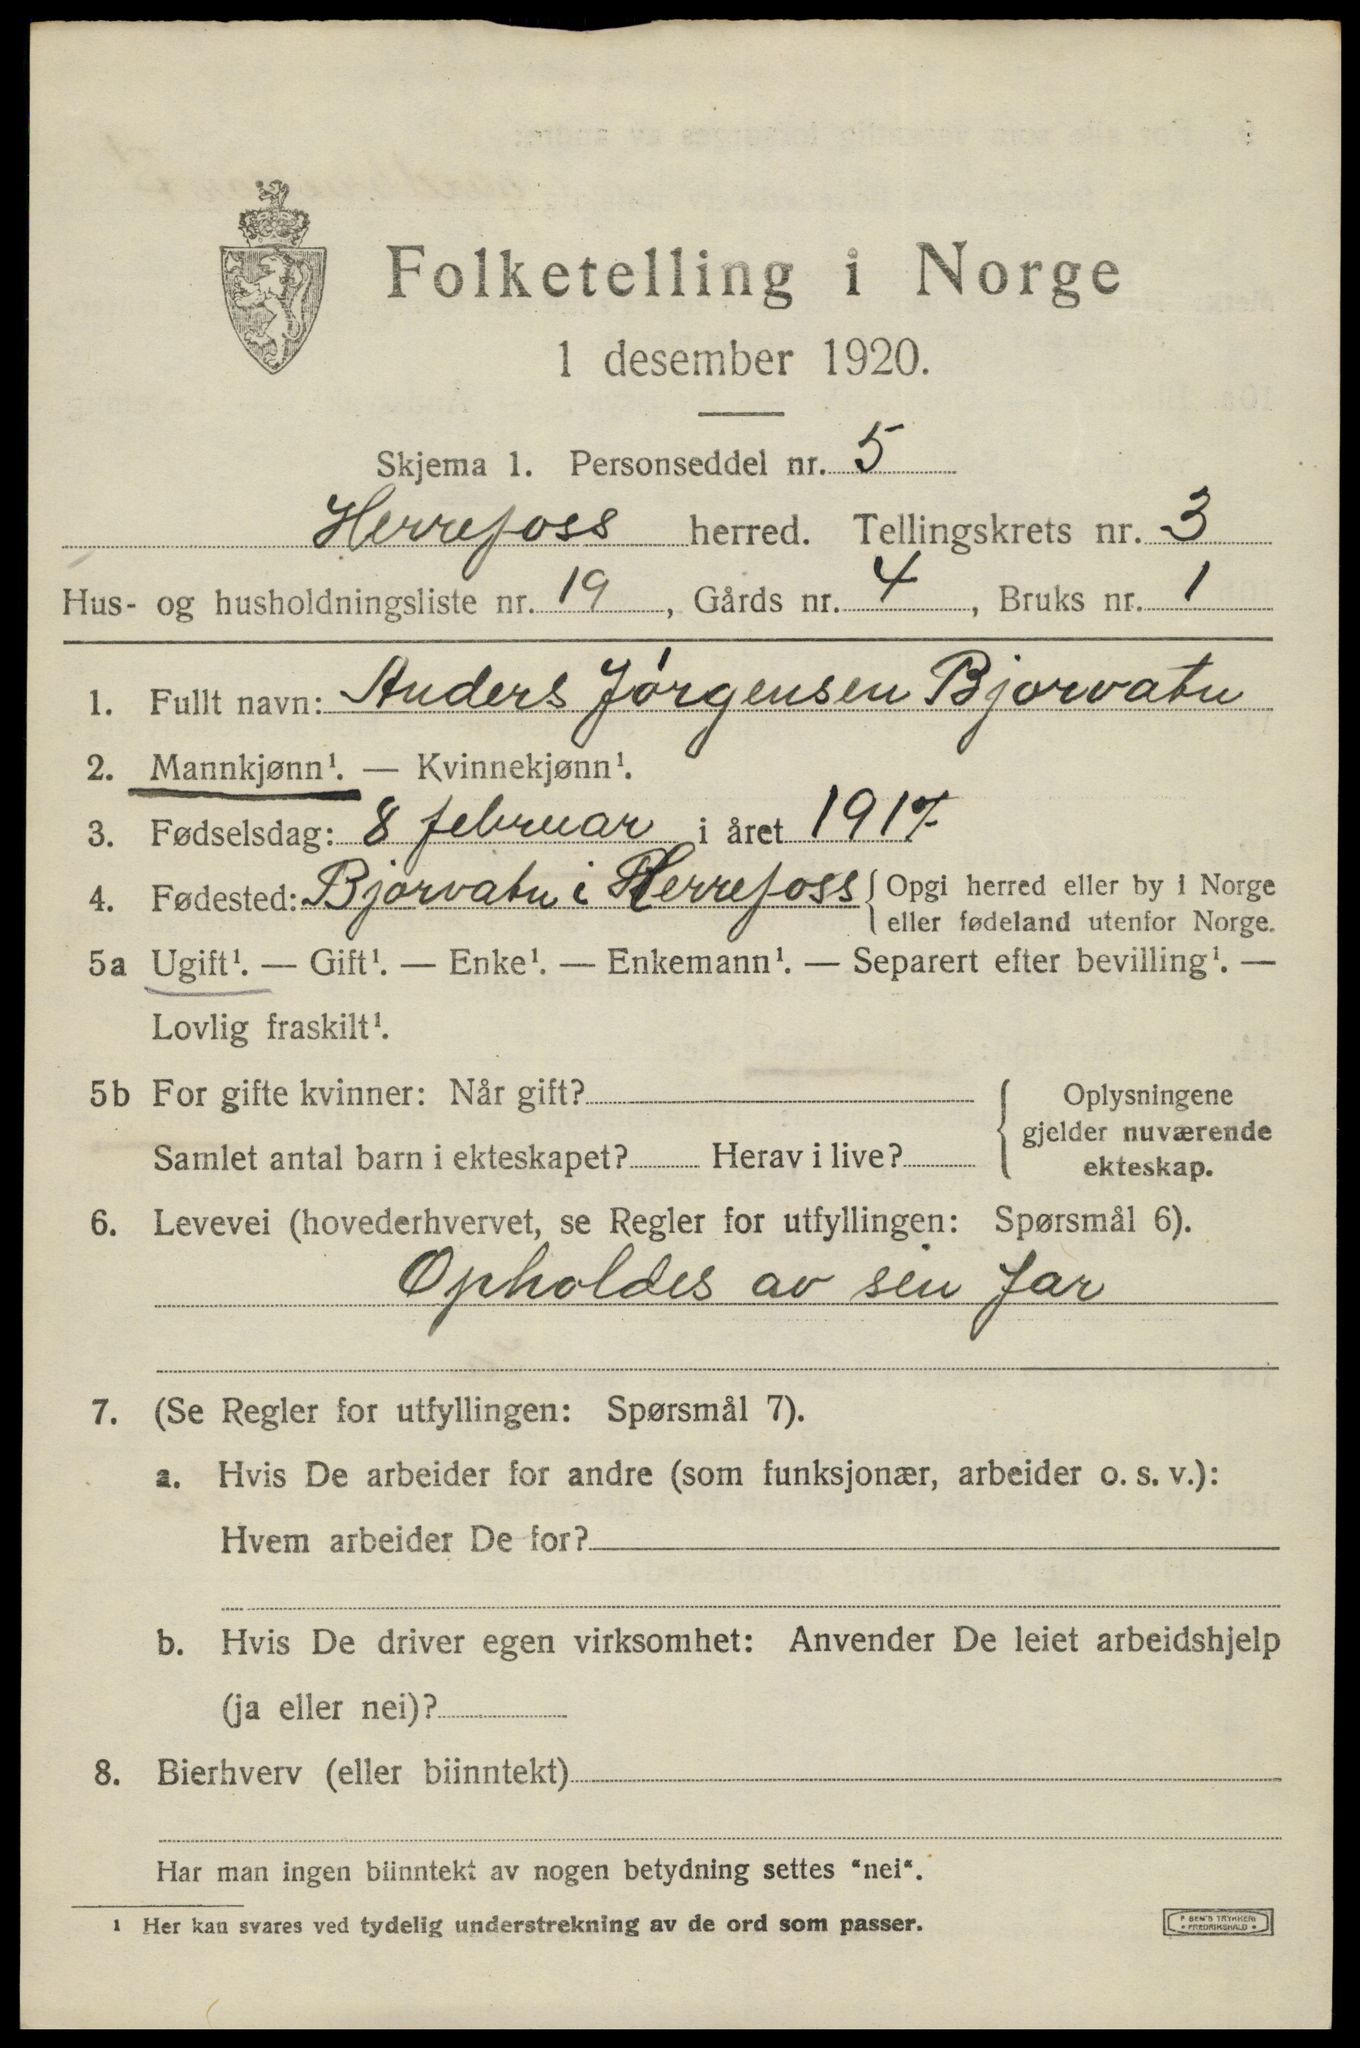 Folketelling i Norge
1 desember 1920.
Skjema 1. Personseddel nr. 5
Herrefoss herred. Tellingskrets nr. 3
Hus- og husholdningsliste nr. 19, Gårds nr. 4, Bruks nr. 1
1. Fullt navn: Anders Jørgensen Bjorvatn
2. Mannkjønn¹. — Kvinnekjønn¹.
3. Fødselsdag: 8 februar i året 1917
4. Fødested: Bjorvatn i Herrefoss { Opgi herred eller by i Norge
eller fødeland utenfor Norge.
5a Ugift¹. — Gift¹. — Enke¹. — Enkemann¹. — Separert efter bevilling¹. —
Lovlig fraskilt¹.
5b For gifte kvinner: Når gift? { Oplysningene
gjelder nuværende
Samlet antal barn i ekteskapet? Herav i live? ekteskap.
6. Levevei (hovederhvervet, se Regler for utfyllingen: Spørsmål 6).
Opholdes av sin far
7. (Se Regler for utfyllingen: Spørsmål 7).
a. Hvis De arbeider for andre (som funksjonær, arbeider o. s. v.):
Hvem arbeider De for?
b. Hvis De driver egen virksomhet: Anvender De leiet arbeidshjelp
(ja eller nei)?
8. Bierhverv (eller biinntekt)
Har man ingen biinntekt av nogen betydning settes "nei".
¹ Her kan svares ved tydelig understrekning av de ord som passer.
SEN'S TRYKKERI
FREDRIKSHALD